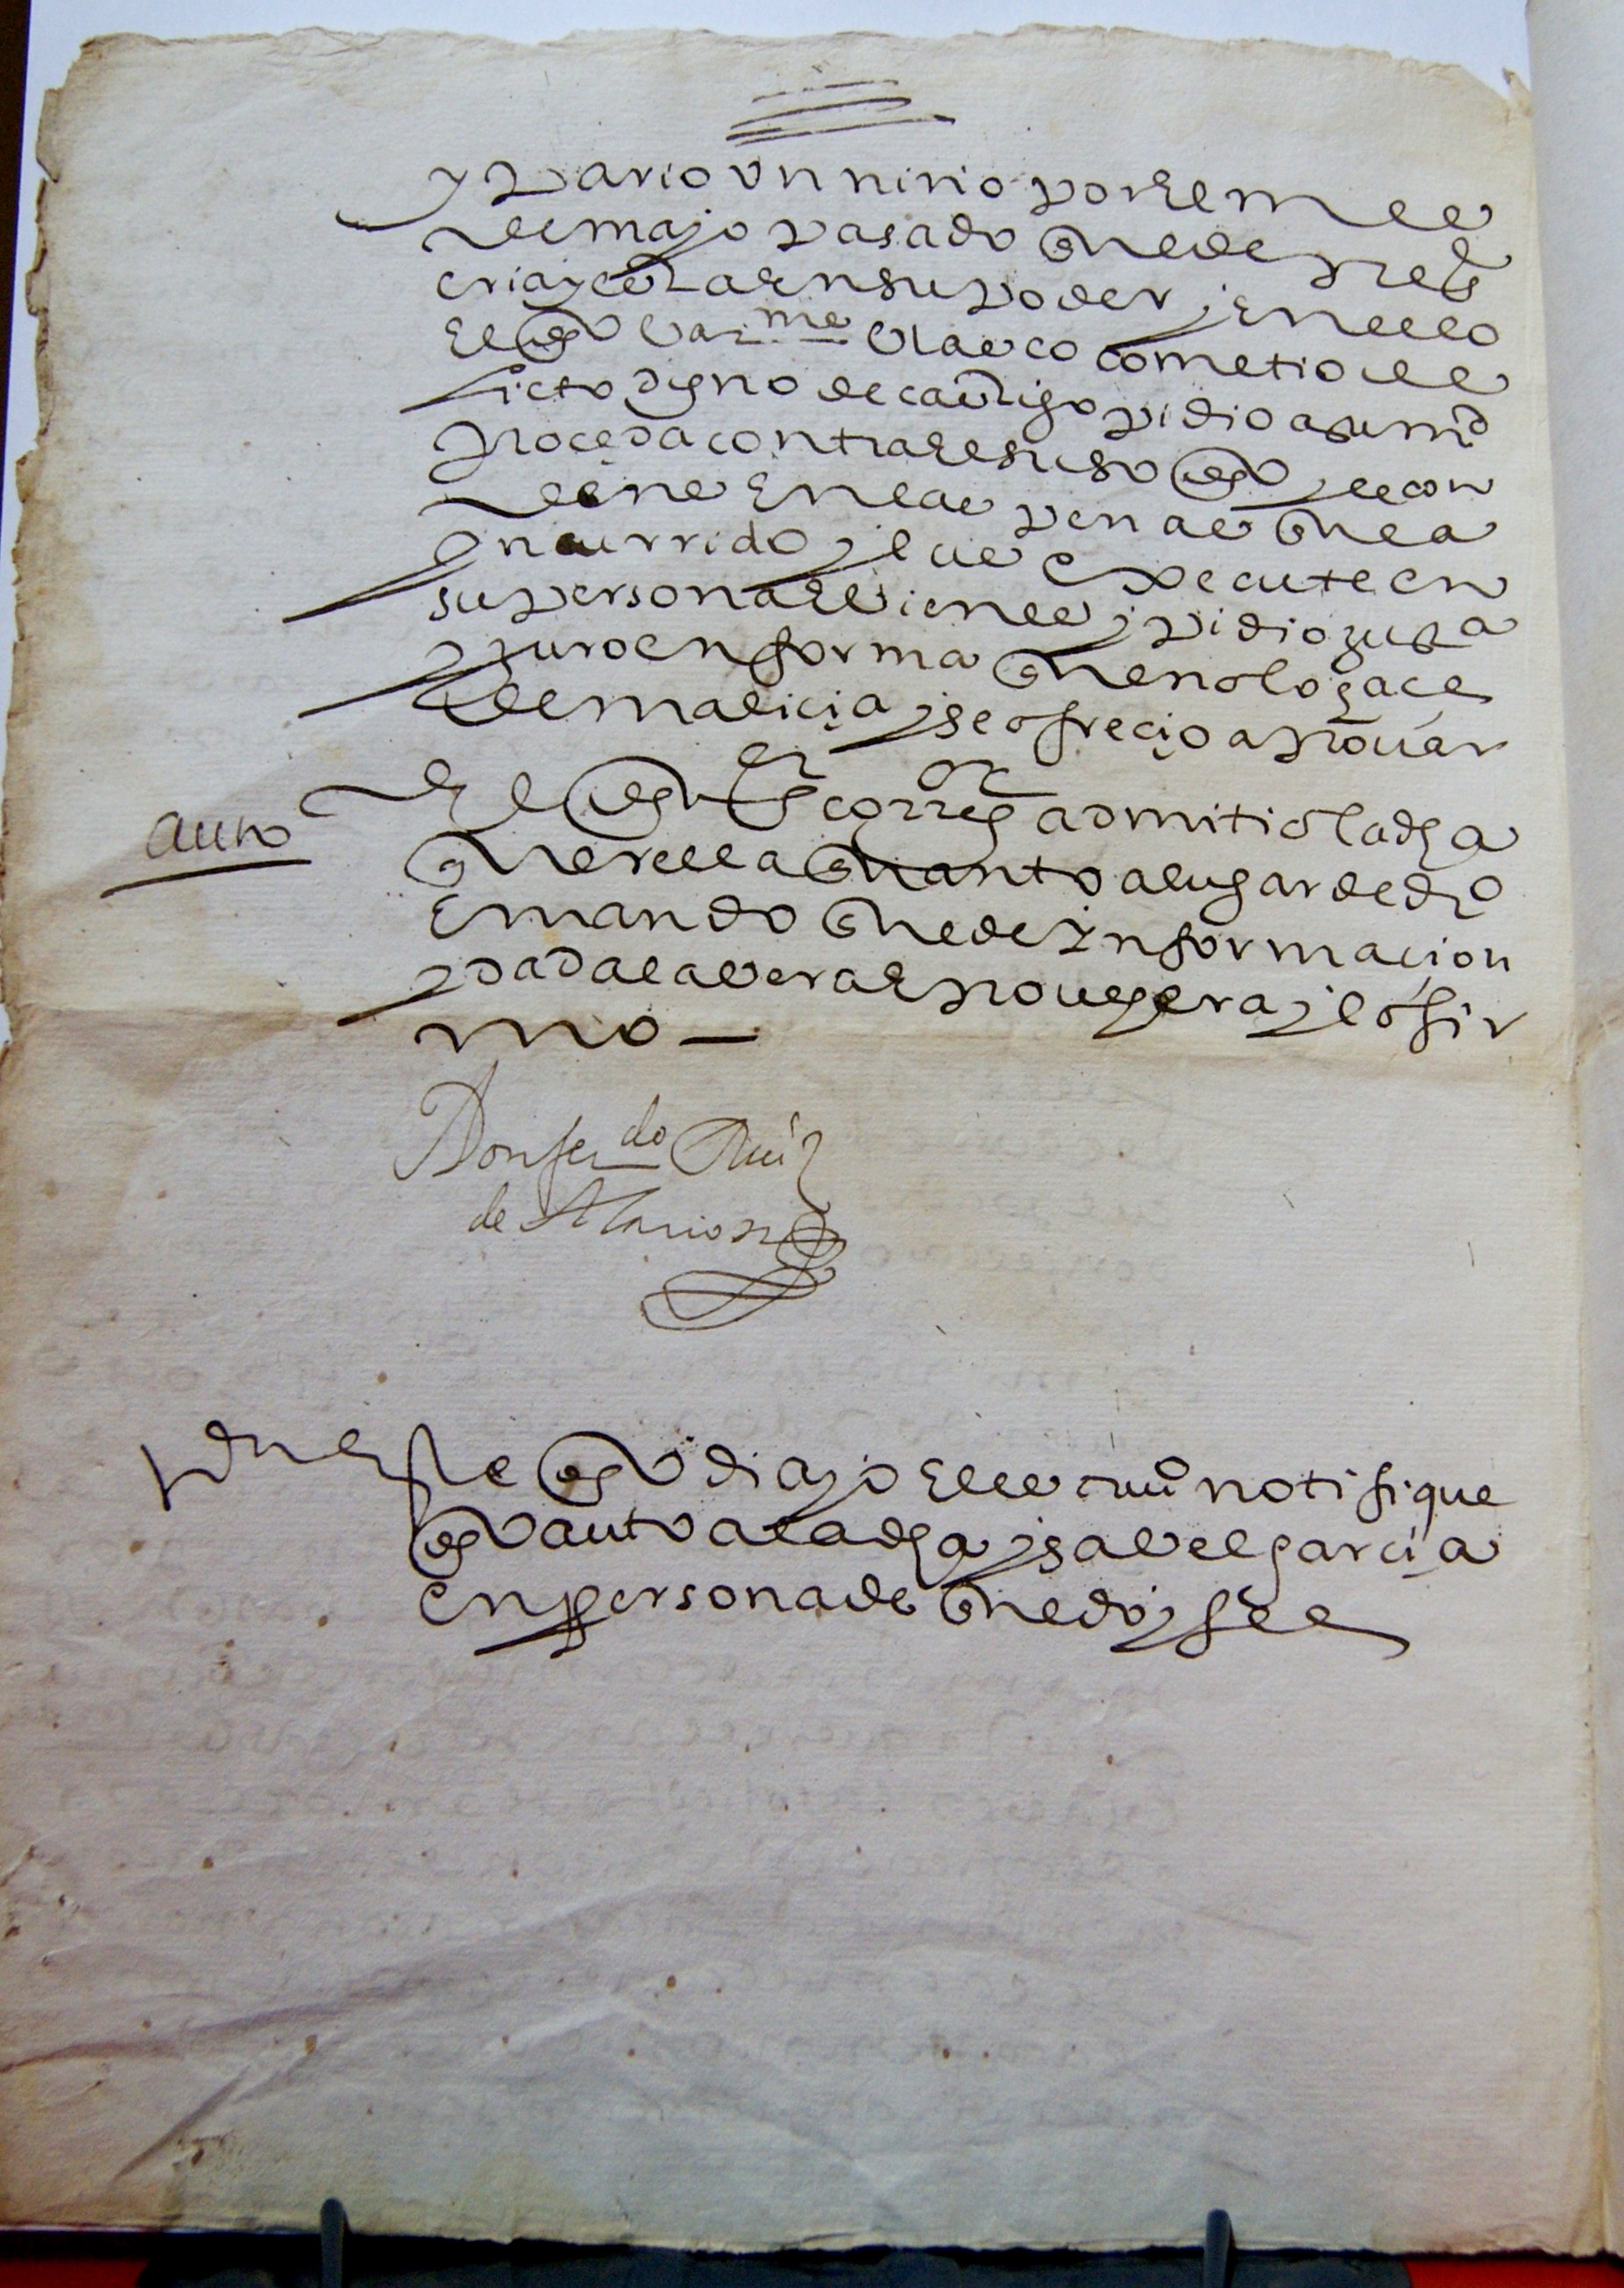 y pario un niño por el mes
de mayo pasado que de preste
cria y esta en su poder y en ello
el dho bar.me blasco cometio de
licto digno de castigo pidio a su md
proceda contra el suso dho y le con
dene en las penas que a
yncurrido y las execute en
su persona e bienes y pidio justa
y juro en forma que no lo haçe
de maliçia y se ofreçio a prouar
auto
El dho sr corregor admitio la dha
querella quanto a lugar de dro
e mando que de ynformaçion
y dada la vera e proueera y lo fir
mo —
Don fer.do Ruiz
de Alarcon
En este dho dia yo el escriuo notifique
el dho auto a la dha ysabel garçia
en persona de que doy fee